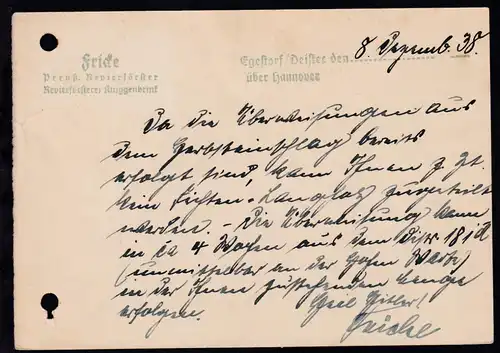 Fricke
Preuß. Revierförster
Revierförsterei Knyggenbrink
Egestorf/Deister den 8. Dezemb. 38.
über Hannover
Da die Überweisungen aus
dem Herbsteinschlag bereits
erfolgt sind, kann Ihnen z. Zt.
kein Fichten-Langholz zugeteilt
werden. – Die Überweisung kann
in ca 4 Wochen aus dem Distr. 181d
(unmittelbar an der Hohen Warte)
in der Ihnen zustehenden Menge
erfolgen.
Heil Hitler!
Fricke